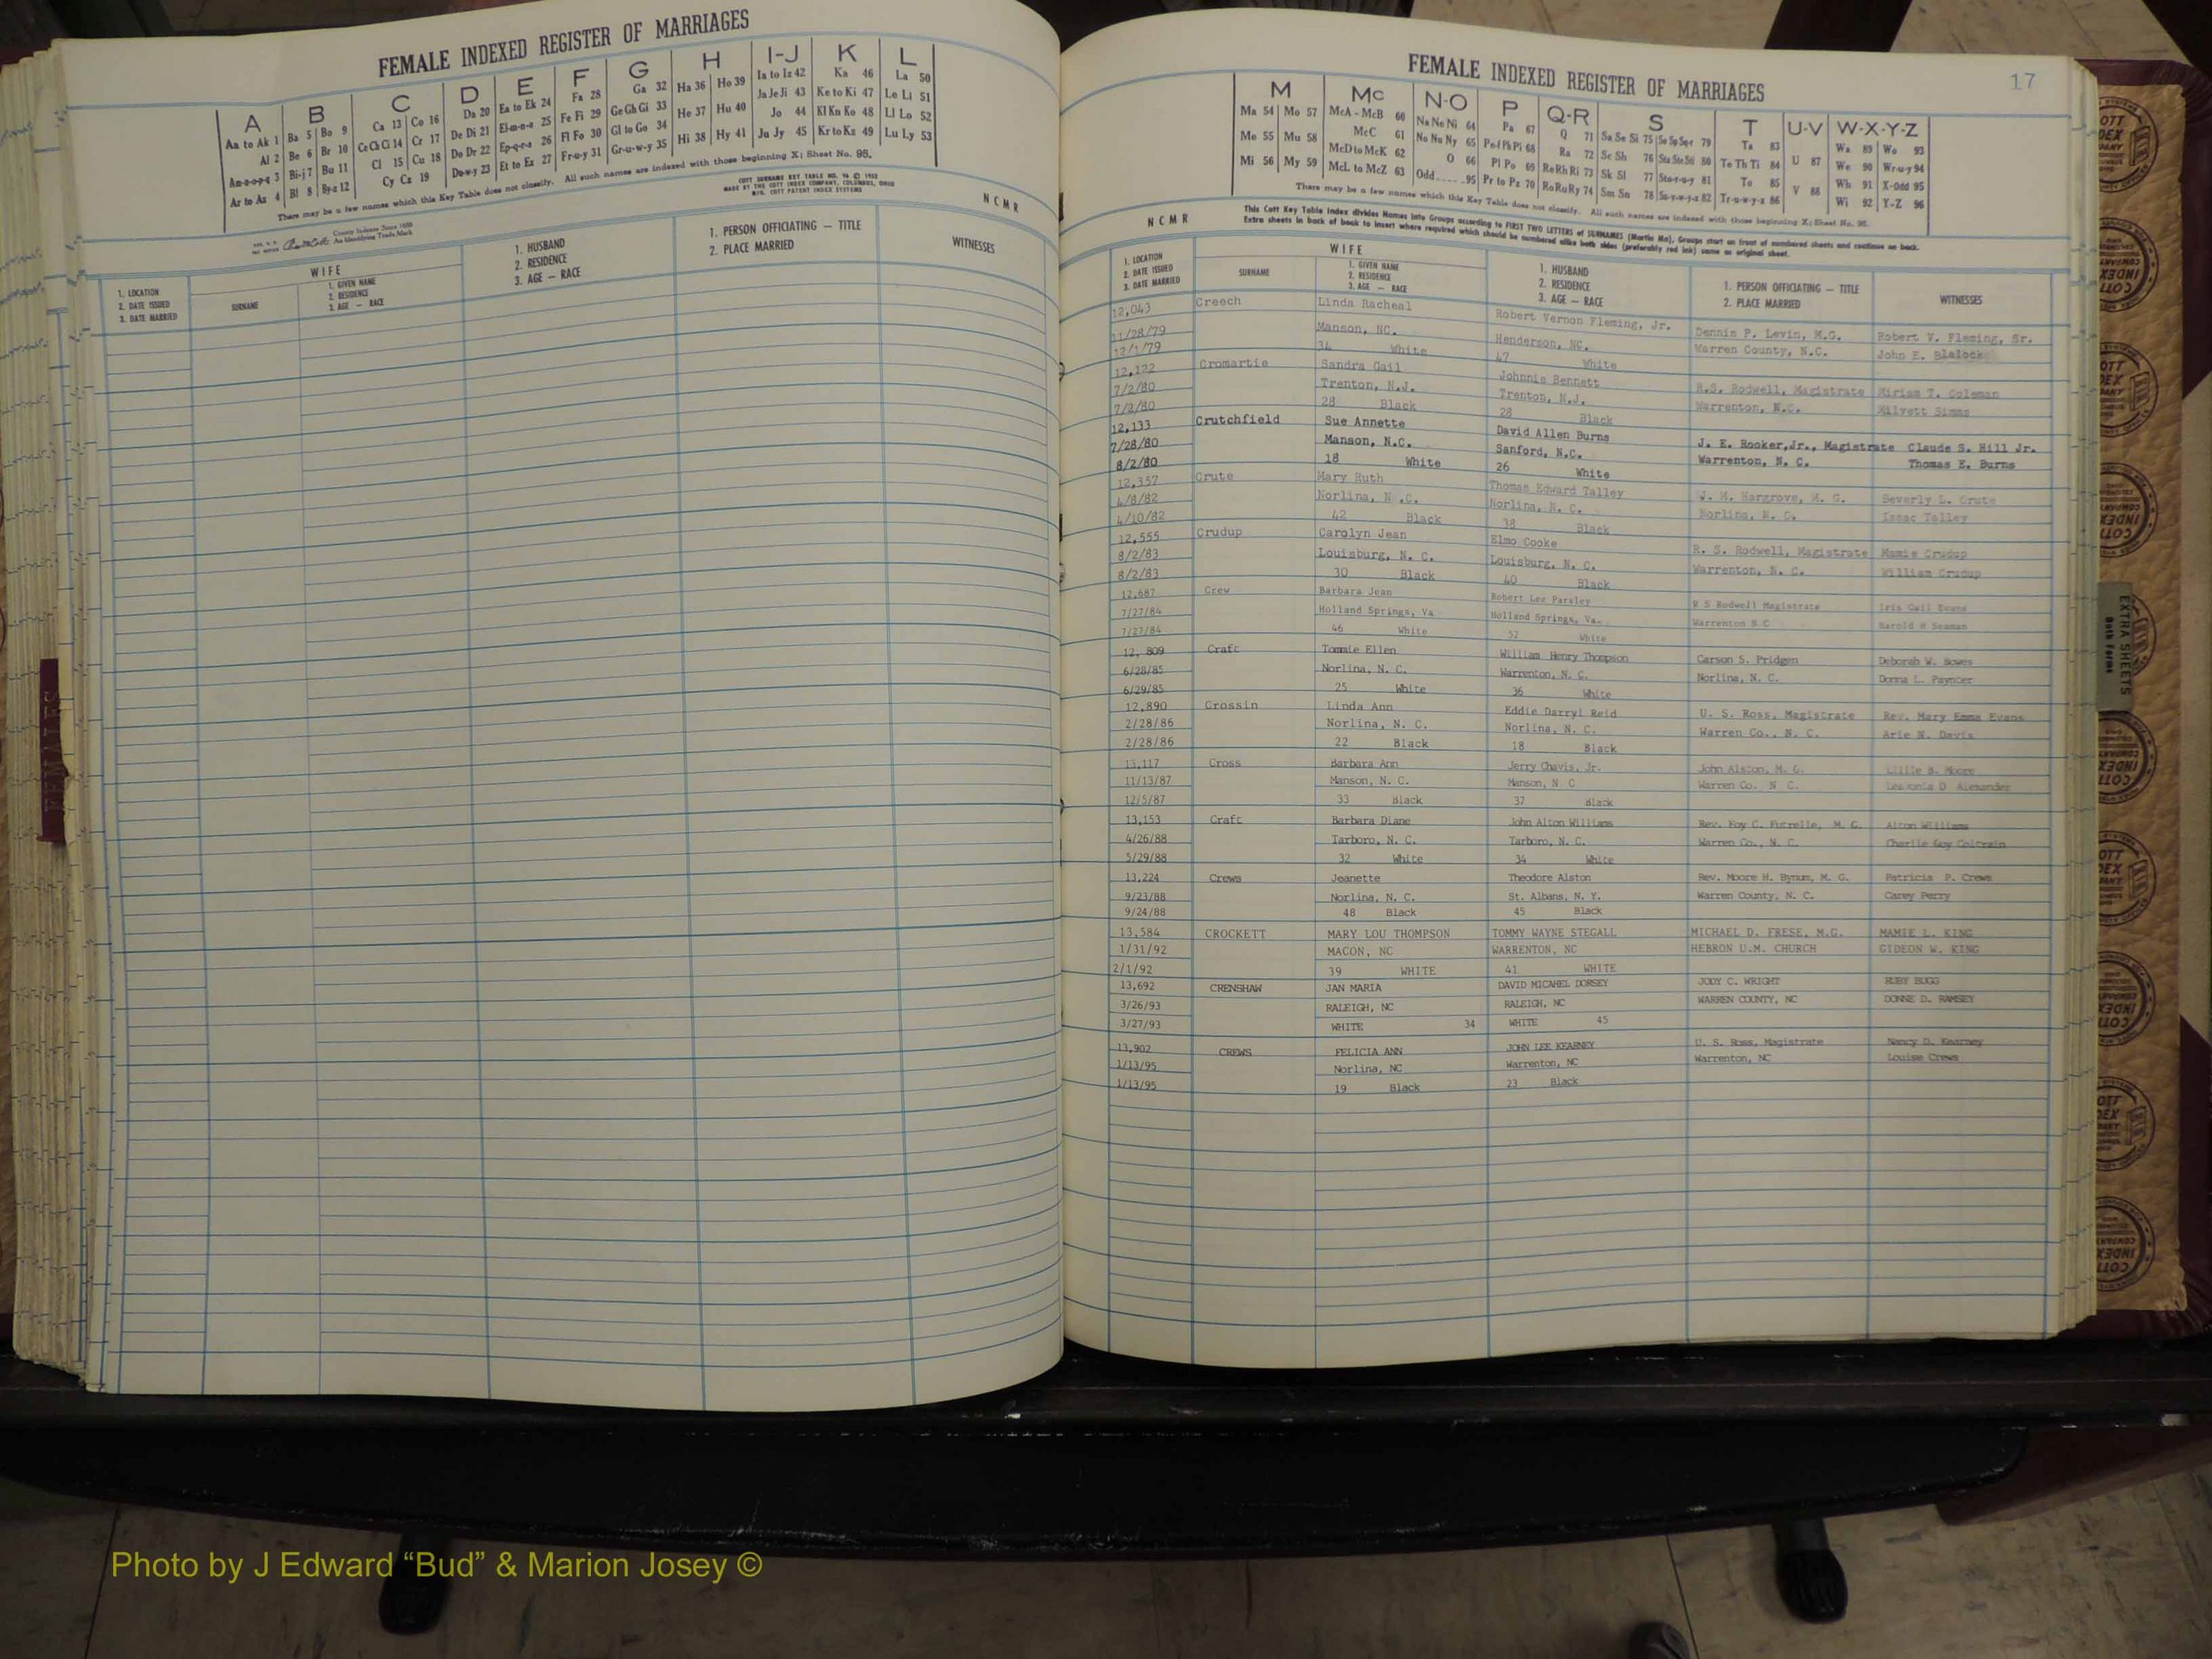 FEMALE INDEXED REGISTER OF MARRIAGES
A B C D E F G H I-J K L
Aa to Ak 1 Ba 5 Bo 9 Ca 13 Co 16 Da 20 Ea to Ek 24 Fa 28 Ga 32 Ha 36 Ho 39 Ia to Iz 42 Ka 46 La 50
Al 2 Be 6 Br 10 Ce Ch Ci 14 Cr 17 De Di 21 El-m-n-o 25 Fe Fi 29 Ge Gh Gi 33 He 37 Hu 40 Ja Je Ji 43 Ke to Ki 47 Le Li 51
Am-n-o-p-q 3 Bi-j 7 Bu 11 Cl 15 Cu 18 Do Dr 22 Ep-q-r-s 26 Fl Fo 30 Gl to Go 34 Hi 38 Hy 41 Jo 44 Kl Kn Ko 48 Ll Lo 52
Ar to Az 4 Bl 8 By-z 12 Cy Cz 19 Du-w-y 23 Et to Ez 27 Fr-u-y 31 Gr-u-w-y 35 Ju Jy 45 Kr to Kz 49 Lu Ly 53
There may be a few names which this Key Table does not classify. All such names are indexed with those beginning X; Sheet No. 95.
COTT SURNAME KEY TABLE NO. 96 © 1952
MADE BY THE COTT INDEX COMPANY, COLUMBUS, OHIO
MFG. COTT PATENT INDEX SYSTEMS
County Indexes Since 1888
An Identifying Trade Mark
N C M R
1. LOCATION
2. DATE ISSUED
3. DATE MARRIED
WIFE
SURNAME
1. GIVEN NAME
2. RESIDENCE
3. AGE — RACE
1. HUSBAND
2. RESIDENCE
3. AGE — RACE
1. PERSON OFFICIATING — TITLE
2. PLACE MARRIED
WITNESSES
FEMALES
FEMALE INDEXED REGISTER OF MARRIAGES
17
M Mc N-O P Q-R S T U-V W-X-Y-Z
Ma 54 Mo 57 McA - McB 60 Na Ne Ni 64 Pa 67 Q 71 Sa Se Si 75 So Sp Sq-r 79 Ta 83 U 87 Wa 89 Wo 93
Me 55 Mu 58 McC 61 No Nu Ny 65 Pe-f Ph Pi 68 Ra 72 Sc Sh 76 Sta Ste Sti 80 Te Th Ti 84 V 88 We 90 Wr-u-y 94
Mi 56 My 59 McD to McK 62 O 66 Pl Po 69 Re Rh Ri 73 Sk Sl 77 Sto-r-u-y 81 To 85 Wh 91 X-Odd 95
McL to McZ 63 Odd 95 Pr to Pz 70 Ro Ru Ry 74 Sm Sn 78 Su-v-w-y-z 82 Tr-u-w-y-z 86 Wi 92 Y-Z 96
There may be a few names which this Key Table does not classify. All such names are indexed with those beginning X; Sheet No. 95.
N C M R
This Cott Key Table Index divides Names into Groups according to FIRST TWO LETTERS of SURNAMES (Martin Ma), Groups start on front of numbered sheets and continue on back.
Extra sheets in back of book to insert where required which should be numbered alike both sides (preferably red ink) same as original sheet.
1. LOCATION
2. DATE ISSUED
3. DATE MARRIED
WIFE
SURNAME
1. GIVEN NAME
2. RESIDENCE
3. AGE — RACE
1. HUSBAND
2. RESIDENCE
3. AGE — RACE
1. PERSON OFFICIATING — TITLE
2. PLACE MARRIED
WITNESSES
12,043 Creech Linda Racheal Robert Vernon Fleming, Jr. Dennis P. Levin, M.G. Robert V. Fleming, Sr.
11/28/79 Manson, NC. Henderson, NC. Warren County, N.C. John E. Blalock
12/1/79 34 White 47 White
12,122 Cromartie Sandra Gail Johnnie Bennett R.S. Rodwell, Magistrate Miriam T. Coleman
7/2/80 Trenton, N.J. Trenton, N.J. Warrenton, N.C. Milvett Simms
7/2/80 28 Black 28 Black
12,133 Crutchfield Sue Annette David Allen Burns J. E. Rooker,Jr., Magistrate Claude S. Hill Jr.
7/28/80 Manson, N.C. Sanford, N.C. Warrenton, N. C. Thomas E. Burns
8/2/80 18 White 26 White
12,357 Crute Mary Ruth Thomas Edward Talley J. M. Hargrove, M. G. Beverly L. Crute
4/8/82 Norlina, N .C. Norlina, N. C. Norlina, N. C. Isaac Talley
4/10/82 42 Black 38 Black
12,555 Crudup Carolyn Jean Elmo Cooke R. S. Rodwell, Magistrate Mamie Crudup
8/2/83 Louisburg, N. C. Louisburg, N. C. Warrenton, N. C. William Crudup
8/2/83 30 Black 40 Black
12,687 Crew Barbara Jean Robert Lee Parsley R S Rodwell Magistrate Iris Gail Evans
7/27/84 Holland Springs, Va Holland Springs, Va. Warrenton N C Harold H Seaman
7/27/84 46 White 52 White
12, 809 Craft Tommie Ellen William Henry Thompson Carson S. Pridgen Deborah W. Bowes
6/28/85 Norlina, N. C. Warrenton, N. C. Norlina, N. C. Donna L. Paynter
6/29/85 25 White 36 White
12,890 Crossin Linda Ann Eddie Darryl Reid U. S. Ross, Magistrate Rev. Mary Emma Evans
2/28/86 Norlina, N. C. Norlina, N. C. Warren Co., N. C. Arie N. Davis
2/28/86 22 Black 18 Black
13,117 Cross Barbara Ann Jerry Chavis, Jr. John Alston, M. G. Lillie B. Moore
11/13/87 Manson, N. C. Manson, N C Warren Co. N C. D Alexander
12/5/87 33 Black 37 Black
13,153 Craft Barbara Diane John Alton Williams Rev. Foy C. Futrelle, M. G. Alton Williams
4/26/88 Tarboro, N. C. Tarboro, N. C. Warren Co., N. C. Charlie Guy Coltrain
5/29/88 32 White 34 White
13,224 Crews Jeanette Theodore Alston Rev. Moore H. Bynum, M. G. Patricia P. Crews
9/23/88 Norlina, N. C. St. Albans, N. Y. Warren County, N. C. Carey Perry
9/24/88 48 Black 45 Black
13,584 CROCKETT MARY LOU THOMPSON TOMMY WAYNE STEGALL MICHAEL D. FRESE, M.G. MAMIE L. KING
1/31/92 MACON, NC WARRENTON, NC HEBRON U.M. CHURCH GIDEON W. KING
2/1/92 39 WHITE 41 WHITE
13,692 CRENSHAW JAN MARIA DAVID MICAHEL DORSEY JODY C. WRIGHT RUBY BUGG
3/26/93 RALEIGH, NC RALEIGH, NC WARREN COUNTY, NC DONNE D. RAMSEY
3/27/93 WHITE 34 WHITE 45
13,902 CREWS FELICIA ANN JOHN LEE KEARNEY U. S. Ross, Magistrate Nancy D. Kearney
1/13/95 Norlina, NC Warrenton, NC Warrenton, NC Louise Crews
1/13/95 19 Black 23 Black
EXTRA SHEETS
Both Forms
Photo by J Edward “Bud” & Marion Josey ©